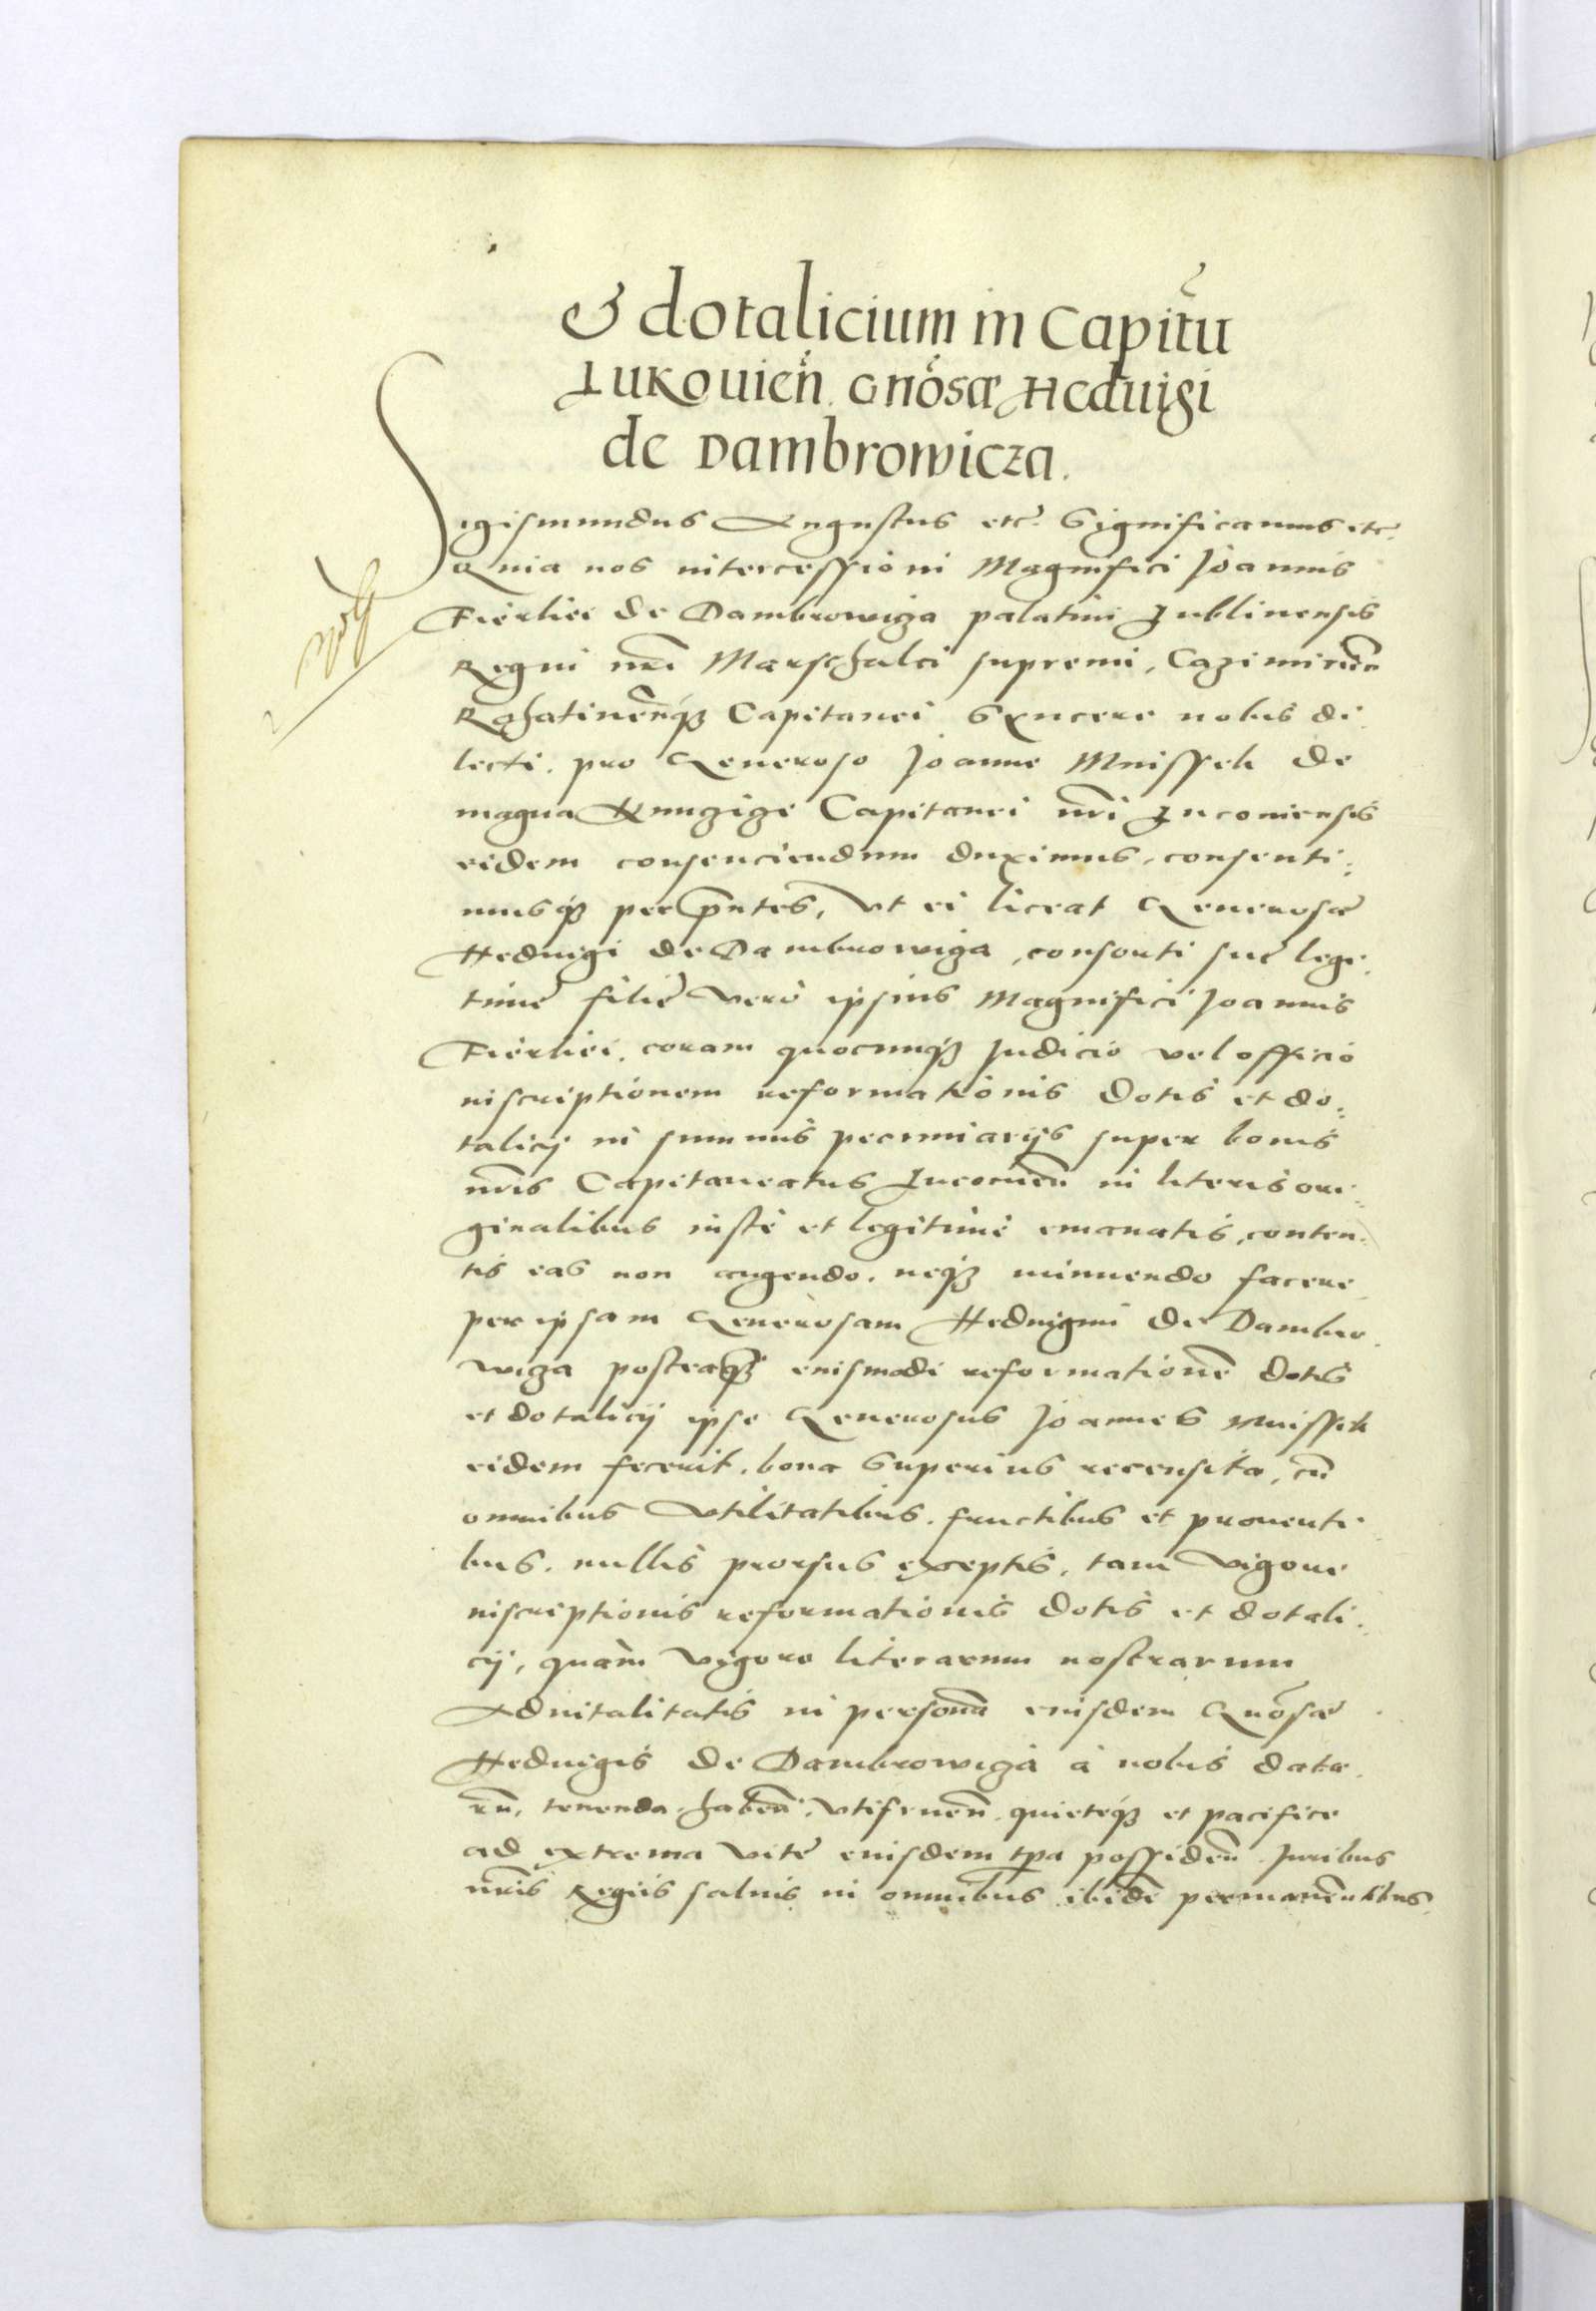 & dotalicium in Capitũ
Lukouieñ. Gñosæ Heduigi
de Dambrowicza.
Sigismundus Augustus etc. Significamus etc.
Quia nos intercessioni Magnifici Joannis
Firlei de Dambrowiza palatini Lublinensis
Regni nri Marschalci supremi, Cazimirieñ
Rohatineñqȝ Capitanei Syncere nobis di
lecti. pro Generoso Joanne Mnissek de
magna Kunzize Capitanei nri Lucouiensis
eidem consenciendum duximus, consenti:
musqȝ per pntes, Vt ei liceat Generosæ
Heduigi de Dambrowiza, consorti sue legi:
time filie vero ipsius Magnifici Joannis
Firlei. coram quocunqȝ Judicio vel officio
inscriptionem reformationis dotis et do:
talicij in summis pecuniarijs super bonis
nris Capitaneatus Lucouieñ in literis ori:
ginalibus iuste et legitime emanatis, conten:
tis eas non augendo. neqȝ minuendo facere.
per ipsam Generosam Heduigim de Dambro
wiza posteaqȝ eiusmodi reformationẽ dotis
et dotalicij ipse Generosus Joannes Mnissek
eidem fecerit. bona Superius recensita, cũ
omnibus Vtilitatibus. fructibus et prouenti
bus. nullis prorsus exceptis, tam Vigore
inscriptionis reformationis dotis et dotali:
cij, quàm Vigore literarum nostrarum
Aduitalitatis in personã eiusdem Gnosæ
Heduigis de Dambrowiza à nobis data
rũ, tenenda. habeñ. Vtifrueñ. quieteqȝ et pacifice
ad extrema vite eiusdem tpa possideñ. Juribus
nris Regiis saluis in omnibus ibidẽ permanẽtibus.